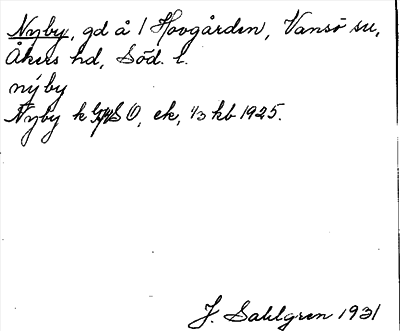 Nyby, gd å 1 Hovgården, Vansö sn,
Åkers hd, Söd. l.
nýby
Nyby k O, ek, 1/3 kb 1925.
J. Sahlgren 1931